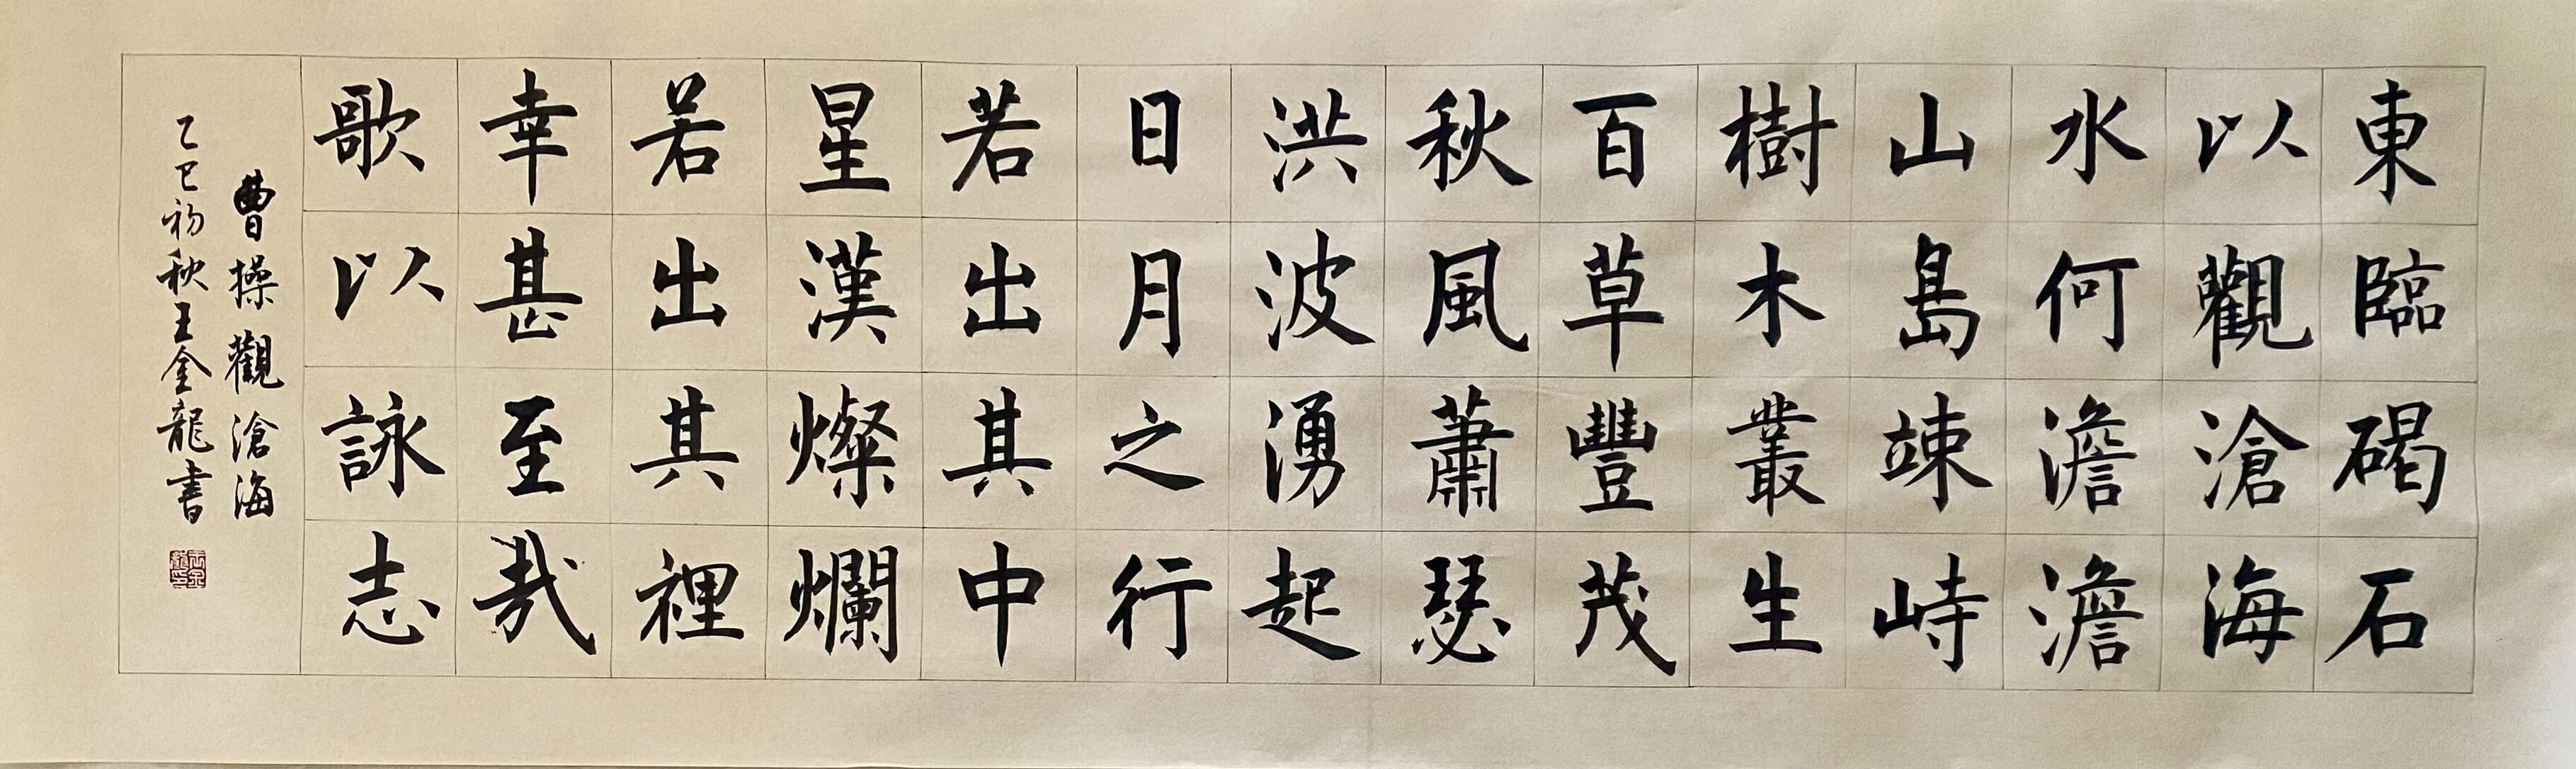 東臨碣石
以觀滄海
水何澹澹
山島竦峙
樹木叢生
百草豐茂
秋風蕭瑟
洪波湧起
日月之行
若出其中
星漢燦爛
若出其裡
幸甚至哉
歌以詠志
曹操觀滄海
乙巳初秋王金龍書